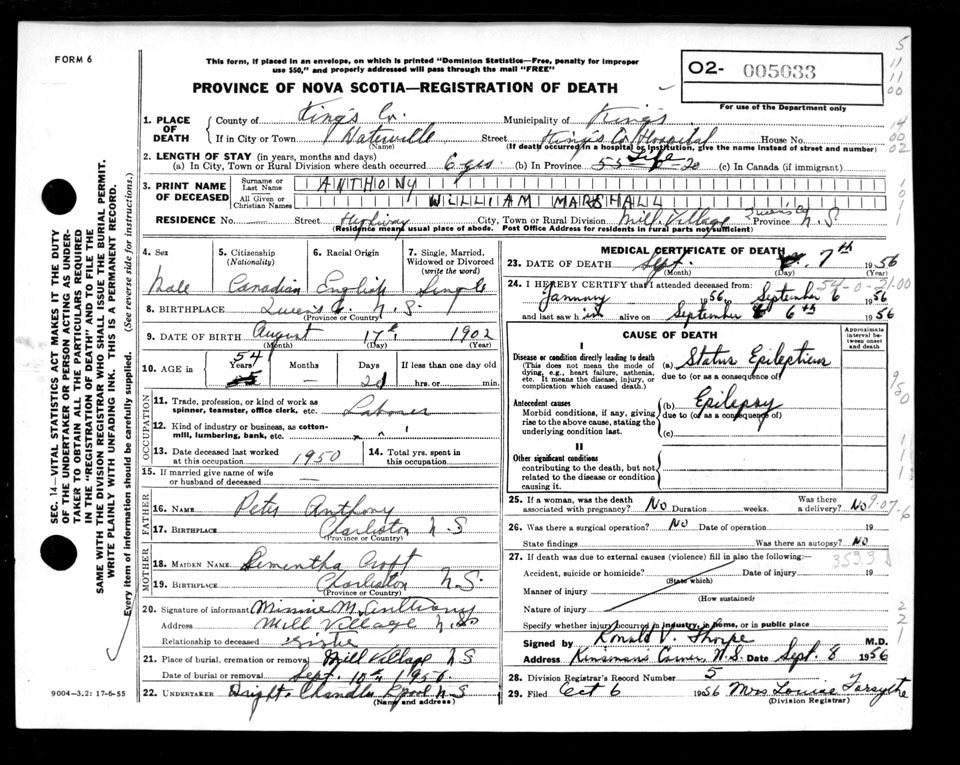 FORM 6
This form, if placed in an envelope, on which is printed "Dominion Statistics—Free, penalty for improper
use $50," and properly addressed will pass through the mail "FREE"
PROVINCE OF NOVA SCOTIA—REGISTRATION OF DEATH
O2- 005033
For use of the Department only
1. PLACE OF DEATH
County of King's Co. Municipality of King's
If in City or Town Waterville (Name) Street King's Co. Hospital House No.
(If death occurred in a hospital or institution, give the name instead of street and number)
2. LENGTH OF STAY (in years, months and days)
(a) In City, Town or Rural Division where death occurred 6 yrs (b) In Province Life (c) In Canada (if immigrant)
3. PRINT NAME OF DECEASED
Surname or Last Name ANTHONY
All Given or Christian Names WILLIAM MARSHALL
RESIDENCE No. Street Highway City, Town or Rural Division Mill Village Queens Co Province N.S
(Residence means usual place of abode. Post Office Address for residents in rural parts not sufficient)
4. Sex Male
5. Citizenship (Nationality) Canadian
6. Racial Origin English
7. Single, Married, Widowed or Divorced (write the word) Single
8. BIRTHPLACE Queen's Co. N.S. (Province or Country)
9. DATE OF BIRTH August (Month) 17th (Day) 1902 (Year)
10. AGE in 54 Years — Months 21 Days If less than one day old hrs. or min.
OCCUPATION
11. Trade, profession, or kind of work as spinner, teamster, office clerk, etc. Laborer
12. Kind of industry or business, as cotton-mill, lumbering, bank, etc.
13. Date deceased last worked at this occupation 1950
14. Total yrs. spent in this occupation
15. If married give name of wife or husband of deceased —
FATHER
16. NAME Peter Anthony
17. BIRTHPLACE Charleston N.S (Province or Country)
MOTHER
18. MAIDEN NAME Croft
19. BIRTHPLACE Charleston N.S. (Province or Country)
20. Signature of informant Minnie M. Anthony
Address Mill Village N.S
Relationship to deceased Sister
21. Place of burial, cremation or removal Mill Village N.S
Date of burial or removal Sept. 10th 1956
22. UNDERTAKER Chandler Lpool N.S
(Name and address)
9004-3.2: 17-6-55
MEDICAL CERTIFICATE OF DEATH
23. DATE OF DEATH Sept. (Month) 7th (Day) 1956 (Year)
24. I HEREBY CERTIFY that I attended deceased from:
January 1956, September 6 1956
and last saw him alive on September 6th 1956
54-0-21.00
CAUSE OF DEATH
Approximate interval between onset and death
I
Disease or condition directly leading to death
(This does not mean the mode of dying, e.g., heart failure, asthenia, etc. It means the disease, injury, or complication which caused death.)
(a) Status Epilepticus
due to (or as a consequence of)
Antecedent causes
Morbid conditions, if any, giving rise to the above cause, stating the underlying condition last.
(b) Epilepsy
due to (or as a consequence of)
(c)
II
Other significant conditions
contributing to the death, but not related to the disease or condition causing it.
25. If a woman, was the death associated with pregnancy? No Duration weeks. Was there a delivery? No
26. Was there a surgical operation? No Date of operation 19
State findings Was there an autopsy? No
27. If death was due to external causes (violence) fill in also the following:—
353.3
Accident, suicide or homicide? (State which) Date of injury 19
Manner of injury
(How sustained)
Nature of injury
Specify whether injury occurred in industry, in home, or in public place
Signed by Ronald V. Thorpe M.D.
Address Kinsman's Corner, N.S. Date Sept. 8 1956
28. Division Registrar's Record Number 5
29. Filed Oct 6 1956 Mrs Louise Forsythe
(Division Registrar)
SEC. 14—VITAL STATISTICS ACT MAKES IT THE DUTY
OF THE UNDERTAKER OR PERSON ACTING AS UNDER-
TAKER TO OBTAIN ALL THE PARTICULARS REQUIRED
IN THE "REGISTRATION OF DEATH" AND TO FILE THE
SAME WITH THE DIVISION REGISTRAR WHO SHALL ISSUE THE BURIAL PERMIT.
WRITE PLAINLY WITH UNFADING INK. THIS IS A PERMANENT RECORD.
Every item of information should be carefully supplied. (See reverse side for instructions.)